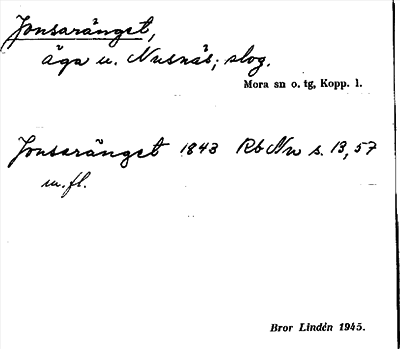 Jonsaränget,
äga u. Nusnäs; slog.
Mora sn o. tg, Kopp. l.
Jonsaränget 1843 Rb Nu s. 13, 57
m.fl.
Bror Lindén 1945.